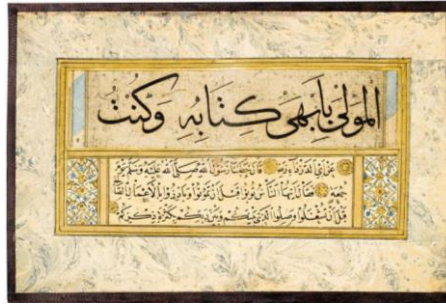 المولى بأبهى كتابه وكنت
عن أبي الدرداء رضه قال خطبنا رسول الله صلى الله عليه وسلم يوم
جمعة فقال يا أيها الناس توبوا قبل أن تموتوا وبادروا الأعمال الصالحة
قبل أن تشغلوا وصلوا الذي بينكم وبين ربكم بكثرة ذكركم